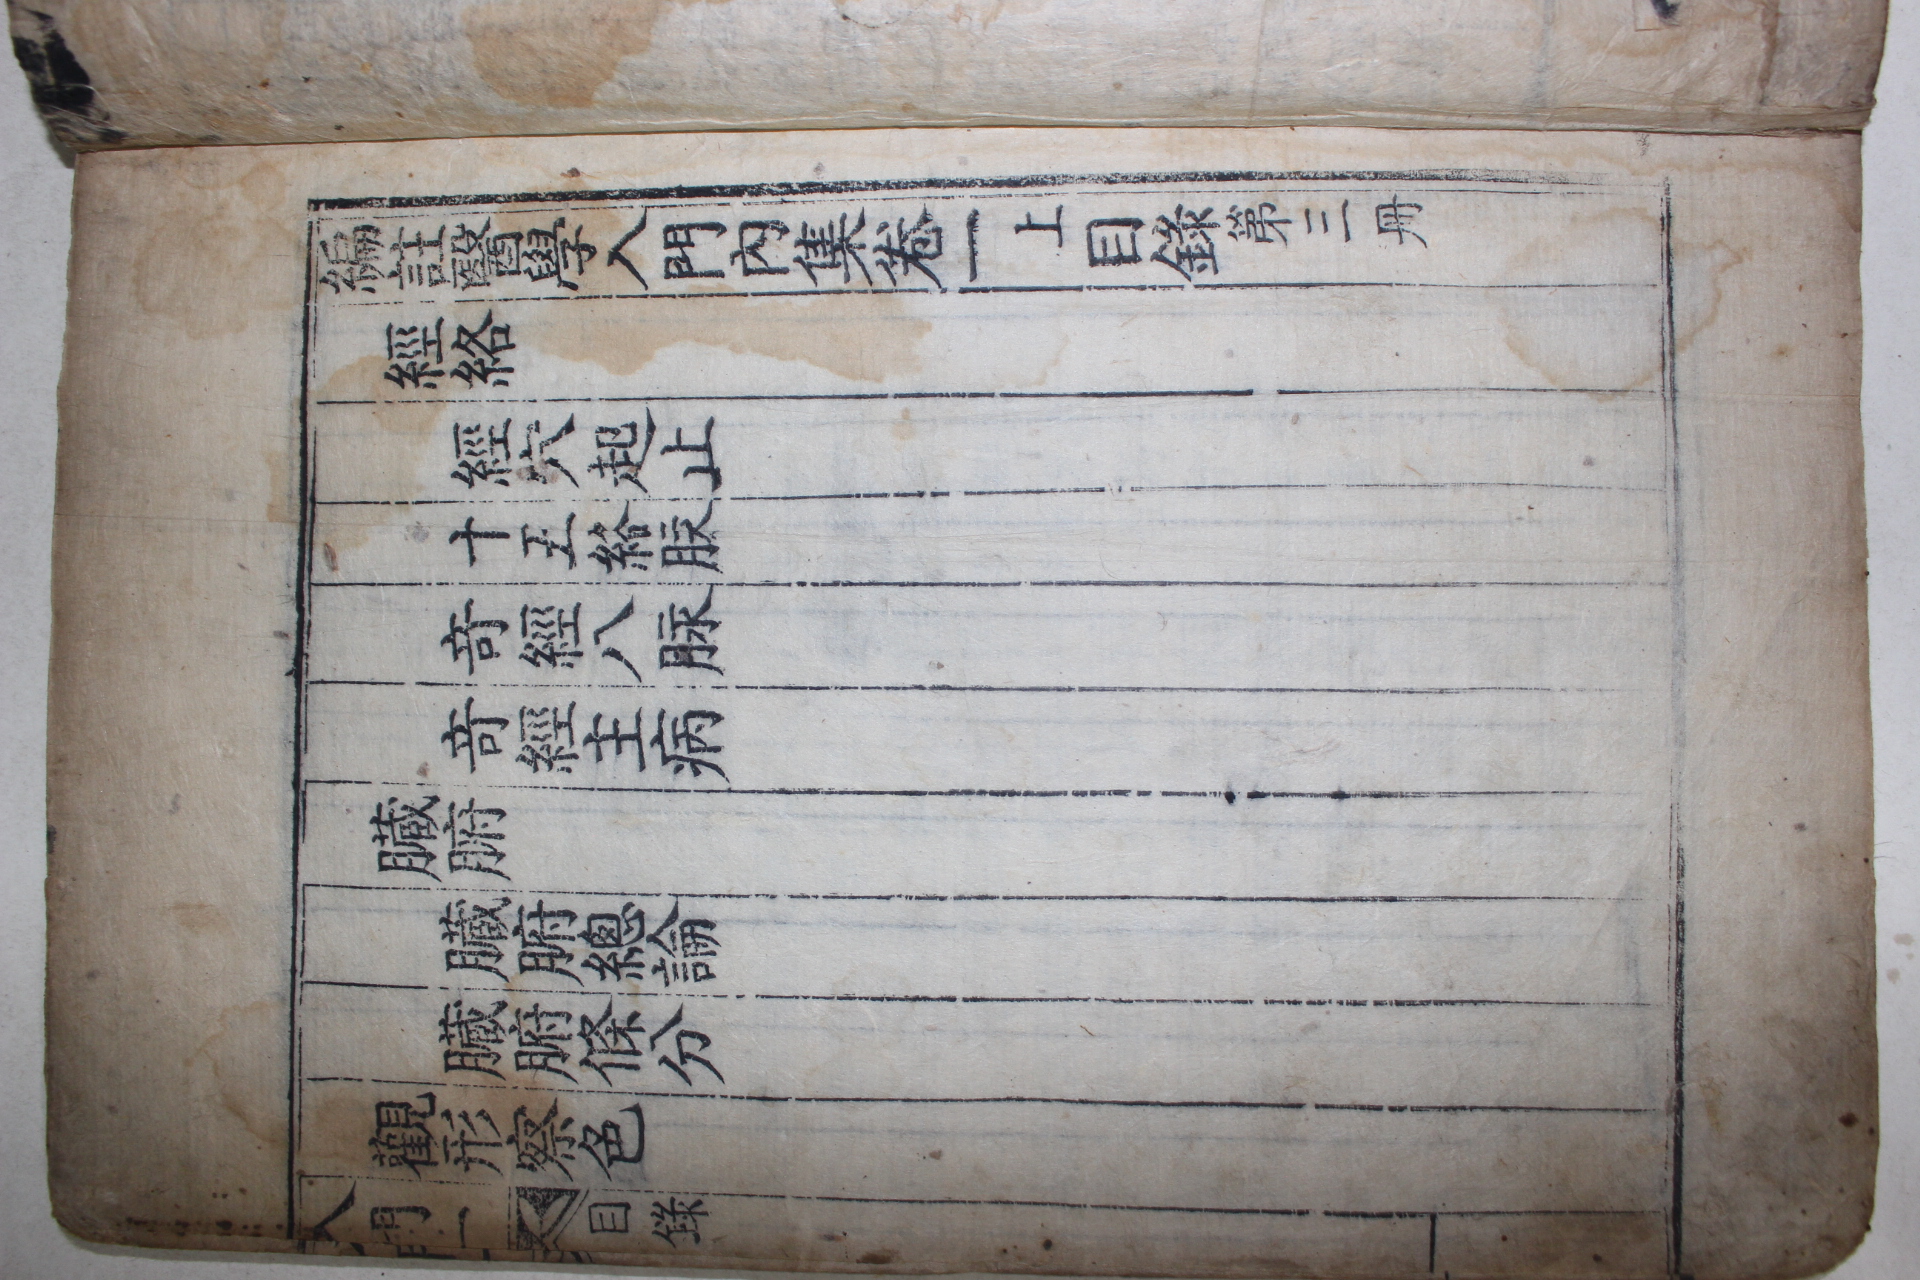 編註醫學入門內集卷一上目錄第三冊
經絡
經穴起止
十五絡脉
奇經八脉
奇經主病
臟腑
臟腑總論
臟腑條分
觀形察色
入門一
目錄